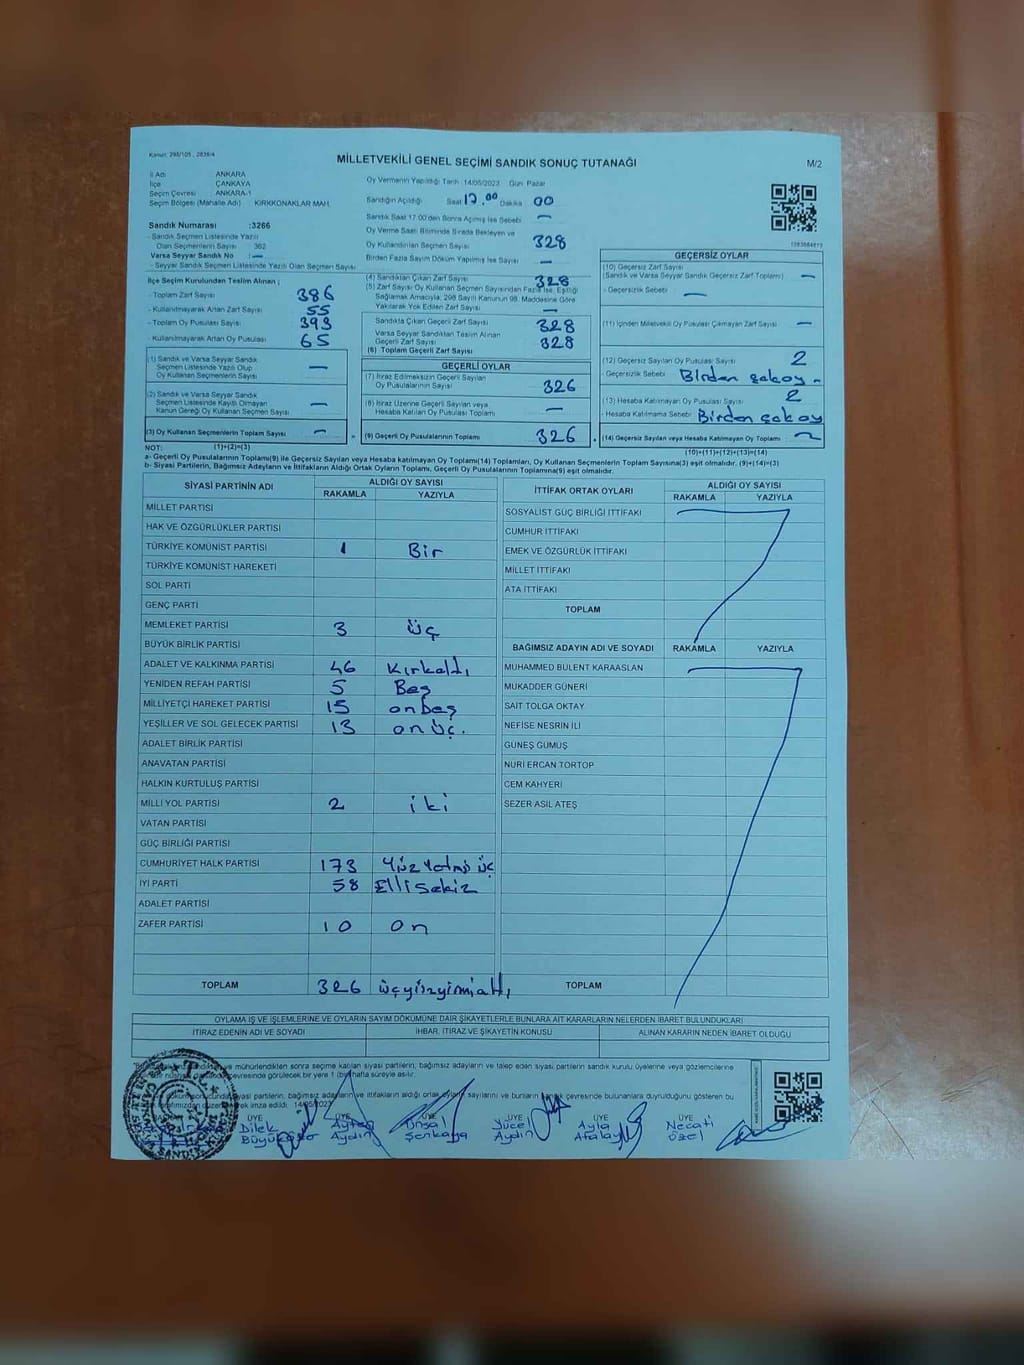 Kanun: 298/105 , 2839/4
MİLLETVEKİLİ GENEL SEÇİMİ SANDIK SONUÇ TUTANAĞI
M/2
İl Adı ANKARA
İlçe ÇANKAYA
Seçim Çevresi ANKARA-1
Seçim Bölgesi (Mahalle Adı) KIRKKONAKLAR MAH.
Sandık Numarası :3266
- Sandık Seçmen Listesinde Yazılı
Olan Seçmenlerin Sayısı : 362
Varsa Seyyar Sandık No : —
- Seyyar Sandık Seçmen Listesinde Yazılı Olan Seçmen Sayısı
İlçe Seçim Kurulundan Teslim Alınan ;
- Toplam Zarf Sayısı 386
- Kullanılmayarak Artan Zarf Sayısı 55
- Toplam Oy Pusulası Sayısı 393
- Kullanılmayarak Artan Oy Pusulası 65
(1) Sandık ve Varsa Seyyar Sandık
Seçmen Listesinde Yazılı Olup
Oy Kullanan Seçmenlerin Sayısı —
(2) Sandık ve Varsa Seyyar Sandık
Seçmen Listesinde Kayıtlı Olmayan
Kanun Gereği Oy Kullanan Seçmen Sayısı —
(3) Oy Kullanan Seçmenlerin Toplam Sayısı —
Oy Vermenin Yapıldığı Tarih 14/05/2023 Gün Pazar
Sandığın Açıldığı Saat 17.00 Dakika 00
Sandık Saat 17:00'den Sonra Açılmış İse Sebebi —
Oy Verme Saati Bitiminde Sırada Bekleyen ve
Oy Kullandırılan Seçmen Sayısı 328
Birden Fazla Sayım Döküm Yapılmış İse Sayısı —
(4) Sandıktan Çıkan Zarf Sayısı 328
(5) Zarf Sayısı Oy Kullanan Seçmen Sayısından Fazla İse, Eşitliği
Sağlamak Amacıyla; 298 Sayılı Kanunun 98. Maddesine Göre
Yakılarak Yok Edilen Zarf Sayısı —
Sandıkta Çıkan Geçerli Zarf Sayısı 328
Varsa Seyyar Sandıktan Teslim Alınan
Geçerli Zarf Sayısı 328
(6) Toplam Geçerli Zarf Sayısı
GEÇERLİ OYLAR
(7) İtiraz Edilmeksizin Geçerli Sayılan
Oy Pusulalarının Sayısı 326
(8) İtiraz Üzerine Geçerli Sayılan veya
Hesaba Katılan Oy Pusulası Toplamı —
(9) Geçerli Oy Pusulalarının Toplamı 326
GEÇERSİZ OYLAR
(10) Geçersiz Zarf Sayısı
(Sandık ve Varsa Seyyar Sandık Geçersiz Zarf Toplamı) —
- Geçersizlik Sebebi : —
(11) İçinden Milletvekili Oy Pusulası Çıkmayan Zarf Sayısı —
(12) Geçersiz Sayılan Oy Pusulası Sayısı 2
- Geçersizlik Sebebi : Birden çok oy -
(13) Hesaba Katılmayan Oy Pusulası Sayısı 2
- Hesaba Katılmama Sebebi : Birden çok oy
(14) Geçersiz Sayılan veya Hesaba Katılmayan Oy Toplamı 2
NOT: (1)+(2)=(3)
(10)+(11)+(12)+(13)=(14)
a- Geçerli Oy Pusulalarının Toplamı(9) ile Geçersiz Sayılan veya Hesaba katılmayan Oy Toplamı(14) Toplamları, Oy Kullanan Seçmenlerin Toplam Sayısına(3) eşit olmalıdır. (9)+(14)=(3)
b- Siyasi Partilerin, Bağımsız Adayların ve İttifakların Aldığı Ortak Oyların Toplamı, Geçerli Oy Pusulalarının Toplamına(9) eşit olmalıdır.
SİYASİ PARTİNİN ADI ALDIĞI OY SAYISI
RAKAMLA YAZIYLA
MİLLET PARTİSİ
HAK VE ÖZGÜRLÜKLER PARTİSİ
TÜRKİYE KOMÜNİST PARTİSİ 1 Bir
TÜRKİYE KOMÜNİST HAREKETİ
SOL PARTİ
GENÇ PARTİ
MEMLEKET PARTİSİ 3 üç
BÜYÜK BİRLİK PARTİSİ
ADALET VE KALKINMA PARTİSİ 46 Kırkaltı
YENİDEN REFAH PARTİSİ 5 Beş
MİLLİYETÇİ HAREKET PARTİSİ 15 onbeş
YEŞİLLER VE SOL GELECEK PARTİSİ 13 onüç.
ADALET BİRLİK PARTİSİ
ANAVATAN PARTİSİ
HALKIN KURTULUŞ PARTİSİ
MİLLİ YOL PARTİSİ 2 iki
VATAN PARTİSİ
GÜÇ BİRLİĞİ PARTİSİ
CUMHURİYET HALK PARTİSİ 173 Yüz Yetmiş üç
İYİ PARTİ 58 Ellisekiz
ADALET PARTİSİ
ZAFER PARTİSİ 10 On
TOPLAM 326 üçyüzyirmialtı
İTTİFAK ORTAK OYLARI ALDIĞI OY SAYISI
RAKAMLA YAZIYLA
SOSYALİST GÜÇ BİRLİĞİ İTTİFAKI
CUMHUR İTTİFAKI
EMEK VE ÖZGÜRLÜK İTTİFAKI
MİLLET İTTİFAKI
ATA İTTİFAKI
TOPLAM
BAĞIMSIZ ADAYIN ADI VE SOYADI RAKAMLA YAZIYLA
MUHAMMED BÜLENT KARAASLAN
MUKADDER GÜNERİ
SAİT TOLGA OKTAY
NEFİSE NESRİN İLİ
GÜNEŞ GÜMÜŞ
NURİ ERCAN TORTOP
CEM KAHYERİ
SEZER ASİL ATEŞ
TOPLAM
OYLAMA İŞ VE İŞLEMLERİNE VE OYLARIN SAYIM DÖKÜMÜNE DAİR ŞİKAYETLERLE BUNLARA AİT KARARLARIN NELERDEN İBARET BULUNDUKLARI
İTİRAZ EDENİN ADI VE SOYADI İHBAR, İTİRAZ VE ŞİKAYETİN KONUSU ALINAN KARARIN NEDEN İBARET OLDUĞU
ve mühürlendikten sonra seçime katılan siyasi partilerin, bağımsız adayların ve talep eden siyasi partilerin sandık kurulu üyelerine veya gözlemcilerine
çevresinde görülecek bir yere 1 (bir) hafta süreyle asılır.
siyasi partilerin, bağımsız adayların ve ittifakların aldığı ortak oyların sayılarını ve bunların sandık çevresinde bulunanlara duyurulduğunu gösteren bu
imza edildi. 14/05/2023
ÜYE ÜYE ÜYE ÜYE ÜYE ÜYE
Dilek Ayten Ünsal Yücel Ayla Necati
Aydın Şenkaya Aydın Atalay Özel